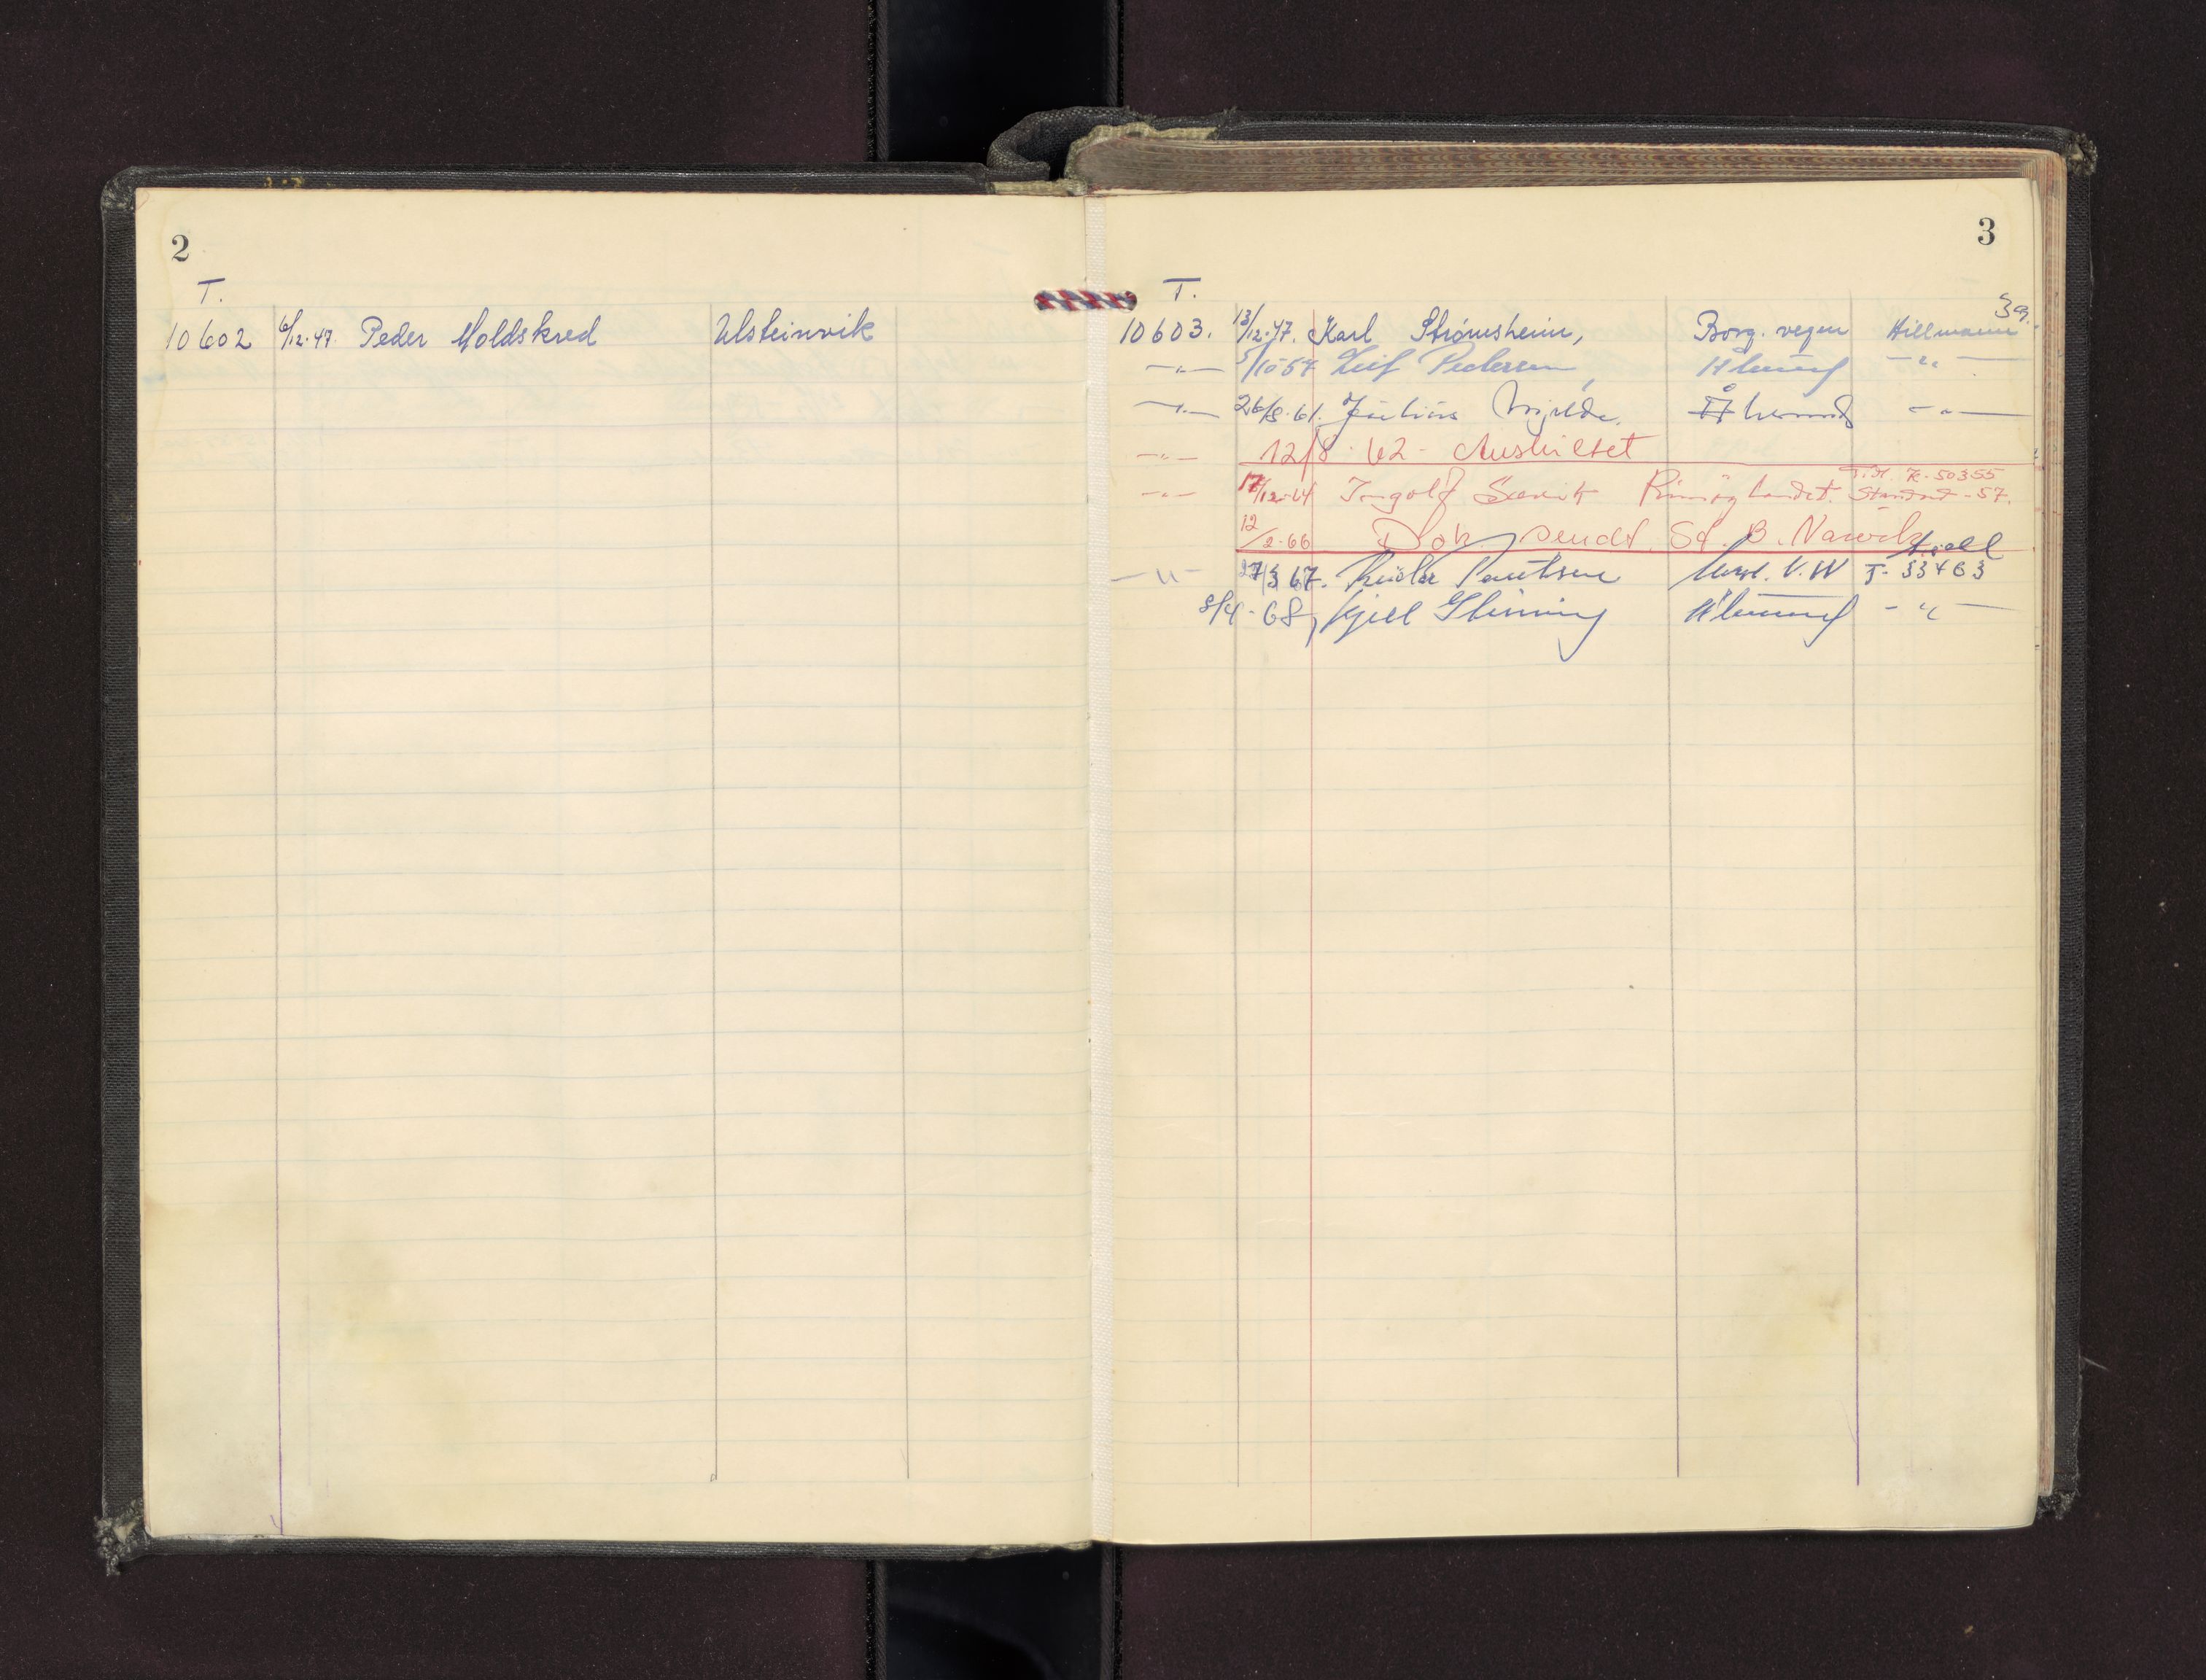 2
T.
10602 6/12.47. Peder Moldskred Ulsteinvik
3
T.
39.
10603. 13/12.47. Karl Strømsheim, Borg. vegen Hillmann
—„— 5/10 54 Leif Pedersen, Ålesund —„—
—„— 26/8.61. Julius Ålesund —„—
—„— 12/8.62 - Avskiltet
T.H. K-50355
—„— 17/12-64 Ingolf Sævik Rimøy Landet. Standard -57.
12/2-66 Dok. sendt Sd. B. Narvik
Kjell
—„— 27/3 67. Knutsen V. W T- 33463
8/4-68, Kjell Ålesund —„—